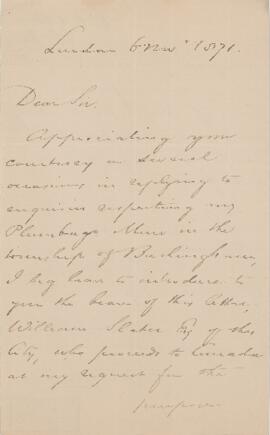 London 6 Nov 1871.
Dear Sir.
Appreciating your
courtesy on several
occasions in replying to
enquiries respecting my
Plumbago Mine in the
township of Buckingham,
I beg leave to introduce to
you the bearer of this letter,
William Slater Esq of this
City, who proceeds to Canada
at my request for the
purpose